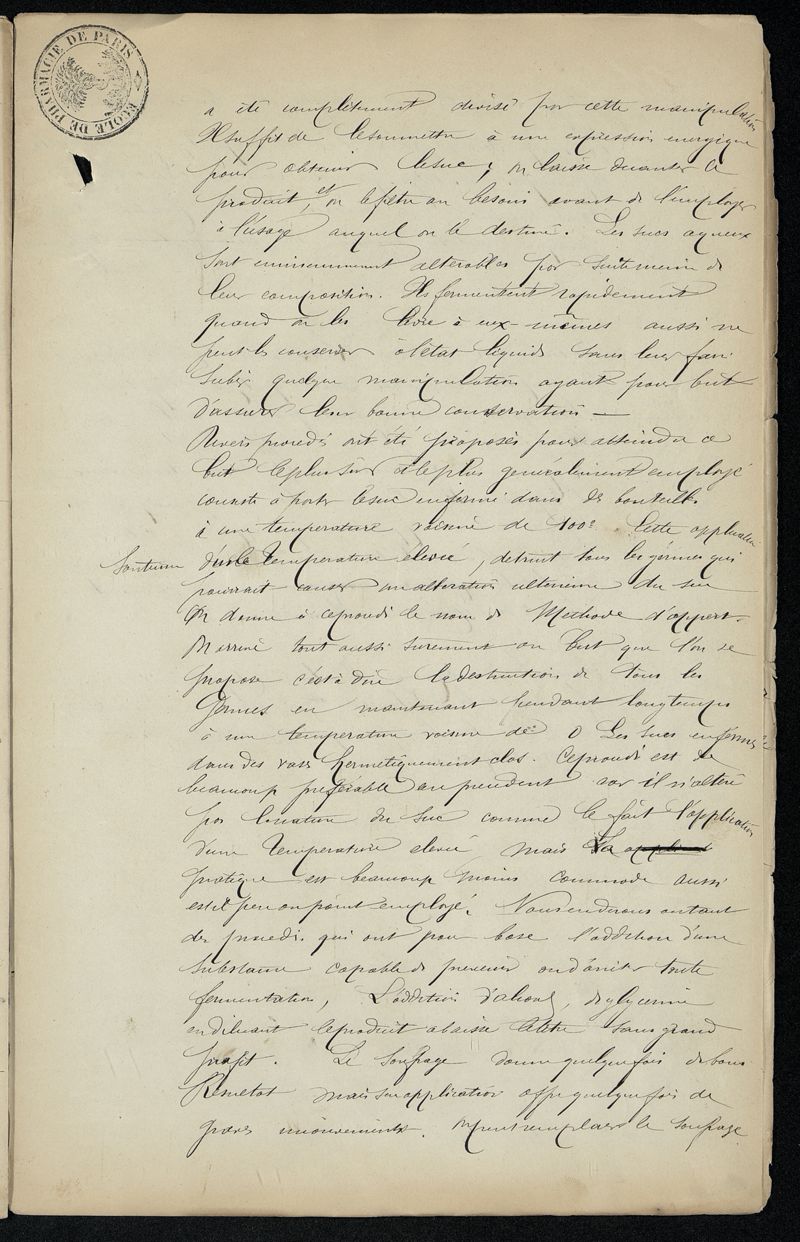 ECOLE DE PHARMACIE DE PARIS
a été complètement divisé par cette manipulation
Il suffit de le soumettre à une expression énergique
pour obtenir le suc ; on laisse décanter le
produit, et on le filtre au besoin avant de l'employer
à l'usage auquel on le destine. Les sucs aqueux
sont éminemment altérables par suite même de
leur composition. Ils fermentent rapidement
quand on les livre à eux-mêmes aussi ne
peut-on les conserver à l'état liquide sans leur faire
subir quelque manipulation ayant pour but
d'assurer leur bonne conservation —
Divers procédés ont été proposés pour atteindre ce
but le plus sûr et le plus généralement employé
consiste à porter le suc enfermé dans des bouteilles
à une température voisine de 100° Cette application
soutenue d'une température élevée, détruit tous les germes qui
pourrait causer une altération ultérieure du suc
On donne à ce procédé le nom de Methode d'appert.
On arrive tout aussi surement au but que l'on se
propose c'est à dire la destruction de tous les
germes en maintenant pendant longtemps
à une température voisine de 0 Les sucs enfermés
dans des vases hermétiquement clos. Ce procédé est de
beaucoup préférable au précédent car il n'altère
pas la nature du suc comme le fait l'application
d'une température élevée mais la
pratique est beaucoup moins commode aussi
est il peu ou point employé. Nous en dirons autant
des procédés qui ont pour base l'addition d'une
substance capable de prévenir ou d'arrêter toute
fermentation, L'addition d'alcool, de glycerine
en diluant le produit abaisse le titre sans grand
profit. Le soufrage donne quelquefois de bons
Résultat mais son application offre quelquefois de
graves inconvénients. On peut remplacer le soufrage